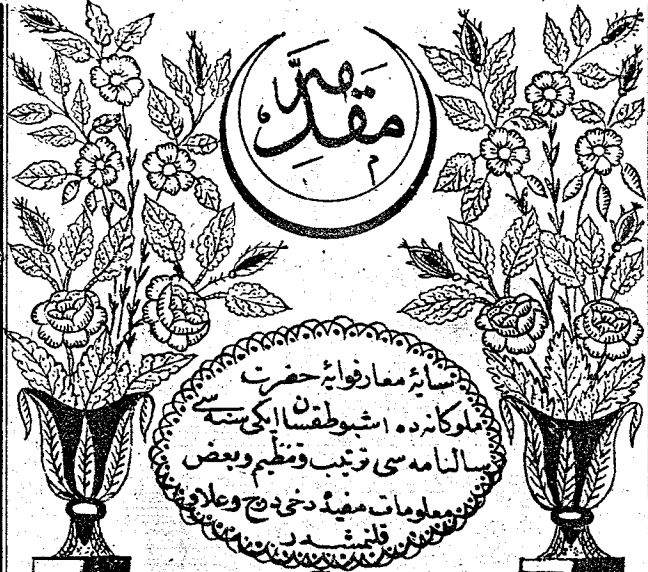 مقدمه
سایۀ معارفوایۀ حضرت
ملوکانه‌ده اشبو طقسان ایکی سنه‌سی
سالنامه‌سی ترتیب وتنظیم وبعض
معلومات مفیده دخی درج وعلاوه
قلنمشدر